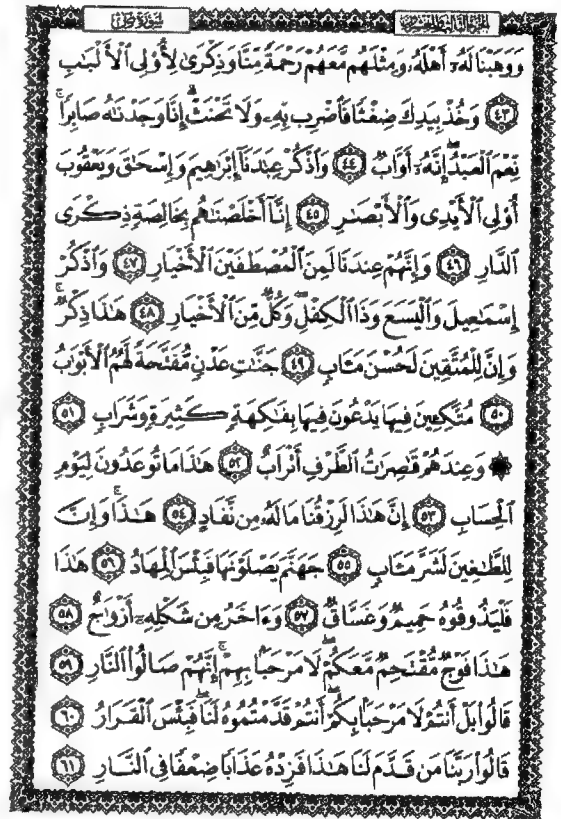 سورة ص
الجزء الثالث والعشرون
وَوَهَبْنَا لَهُۥٓ أَهْلَهُۥ وَمِثْلَهُم مَّعَهُمْ رَحْمَةً مِّنَّا وَذِكْرَىٰ لِأُو۟لِى ٱلْأَلْبَٰبِ
٤٣ وَخُذْ بِيَدِكَ ضِغْثًا فَٱضْرِب بِّهِۦ وَلَا تَحْنَثْ ۗ إِنَّا وَجَدْنَٰهُ صَابِرًا ۚ
نِّعْمَ ٱلْعَبْدُ ۖ إِنَّهُۥٓ أَوَّابٌ ٤٤ وَٱذْكُرْ عِبَٰدَنَآ إِبْرَٰهِيمَ وَإِسْحَٰقَ وَيَعْقُوبَ
أُو۟لِى ٱلْأَيْدِى وَٱلْأَبْصَٰرِ ٤٥ إِنَّآ أَخْلَصْنَٰهُم بِخَالِصَةٍ ذِكْرَى
ٱلدَّارِ ٤٦ وَإِنَّهُمْ عِندَنَا لَمِنَ ٱلْمُصْطَفَيْنَ ٱلْأَخْيَارِ ٤٧ وَٱذْكُرْ
إِسْمَٰعِيلَ وَٱلْيَسَعَ وَذَا ٱلْكِفْلِ ۖ وَكُلٌّ مِّنَ ٱلْأَخْيَارِ ٤٨ هَٰذَا ذِكْرٌ ۚ
وَإِنَّ لِلْمُتَّقِينَ لَحُسْنَ مَـَٔابٍ ٤٩ جَنَّٰتِ عَدْنٍ مُّفَتَّحَةً لَّهُمُ ٱلْأَبْوَٰبُ
٥٠ مُتَّكِـِٔينَ فِيهَا يَدْعُونَ فِيهَا بِفَٰكِهَةٍ كَثِيرَةٍ وَشَرَابٍ ٥١
۞ وَعِندَهُمْ قَٰصِرَٰتُ ٱلطَّرْفِ أَتْرَابٌ ٥٢ هَٰذَا مَا تُوعَدُونَ لِيَوْمِ
ٱلْحِسَابِ ٥٣ إِنَّ هَٰذَا لَرِزْقُنَا مَا لَهُۥ مِن نَّفَادٍ ٥٤ هَٰذَا ۚ وَإِنَّ
لِلطَّٰغِينَ لَشَرَّ مَـَٔابٍ ٥٥ جَهَنَّمَ يَصْلَوْنَهَا فَبِئْسَ ٱلْمِهَادُ ٥٦ هَٰذَا
فَلْيَذُوقُوهُ حَمِيمٌ وَغَسَّاقٌ ٥٧ وَءَاخَرُ مِن شَكْلِهِۦٓ أَزْوَٰجٌ ٥٨
هَٰذَا فَوْجٌ مُّقْتَحِمٌ مَّعَكُمْ ۖ لَا مَرْحَبًۢا بِهِمْ ۚ إِنَّهُمْ صَالُوا۟ ٱلنَّارِ ٥٩
قَالُوا۟ بَلْ أَنتُمْ لَا مَرْحَبًۢا بِكُمْ ۖ أَنتُمْ قَدَّمْتُمُوهُ لَنَا ۖ فَبِئْسَ ٱلْقَرَارُ ٦٠
قَالُوا۟ رَبَّنَا مَن قَدَّمَ لَنَا هَٰذَا فَزِدْهُ عَذَابًا ضِعْفًا فِى ٱلنَّارِ ٦١